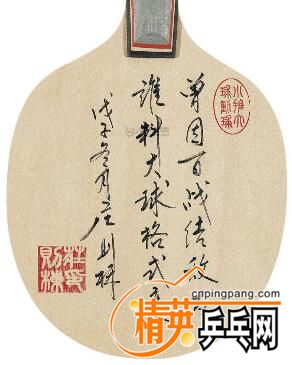 曾因百战结
谁料大球格式
戊子冬月庄则栋
小球推动大球
cnpingpang.com
精英乒乓网